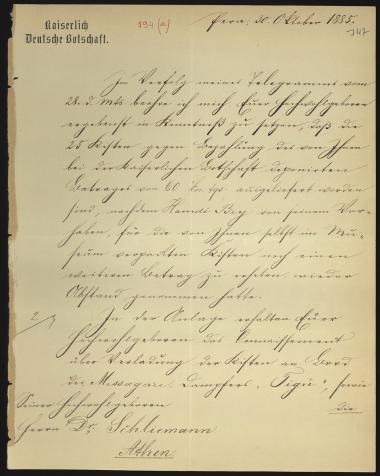 Kaiserlich
Deutsche Botschaft.
894 (a)
Pera, 30. Oktober 1885.
347
Im Verfolg meines Telegramms vom
28. d. Mts beehre ich mich, Euer Hochwohlgeboren
ergebenst in Kenntniß zu setzen, daß die
25 Kisten gegen Bezahlung des von Ihnen
bei der Kaiserlichen Botschaft deponirten
Betrages von 60 ausgeliefert worden
sind, nachdem Hamdi Bey von seinem Vor-
haben, für die von Ihnen selbst im Mu-
seum verpackten Kisten noch einen
weiteren Betrag zu erheben, wieder
Abstand genommen hatte.
In der Anlage erhalten Euer
Hochwohlgeboren das Connaissement
über Verladung der Kisten an Bord
des Messagerie Dampfers "Tigre", sowie
die
Seiner Hochwohlgeboren
Herrn Dr. Schliemann
Athen.